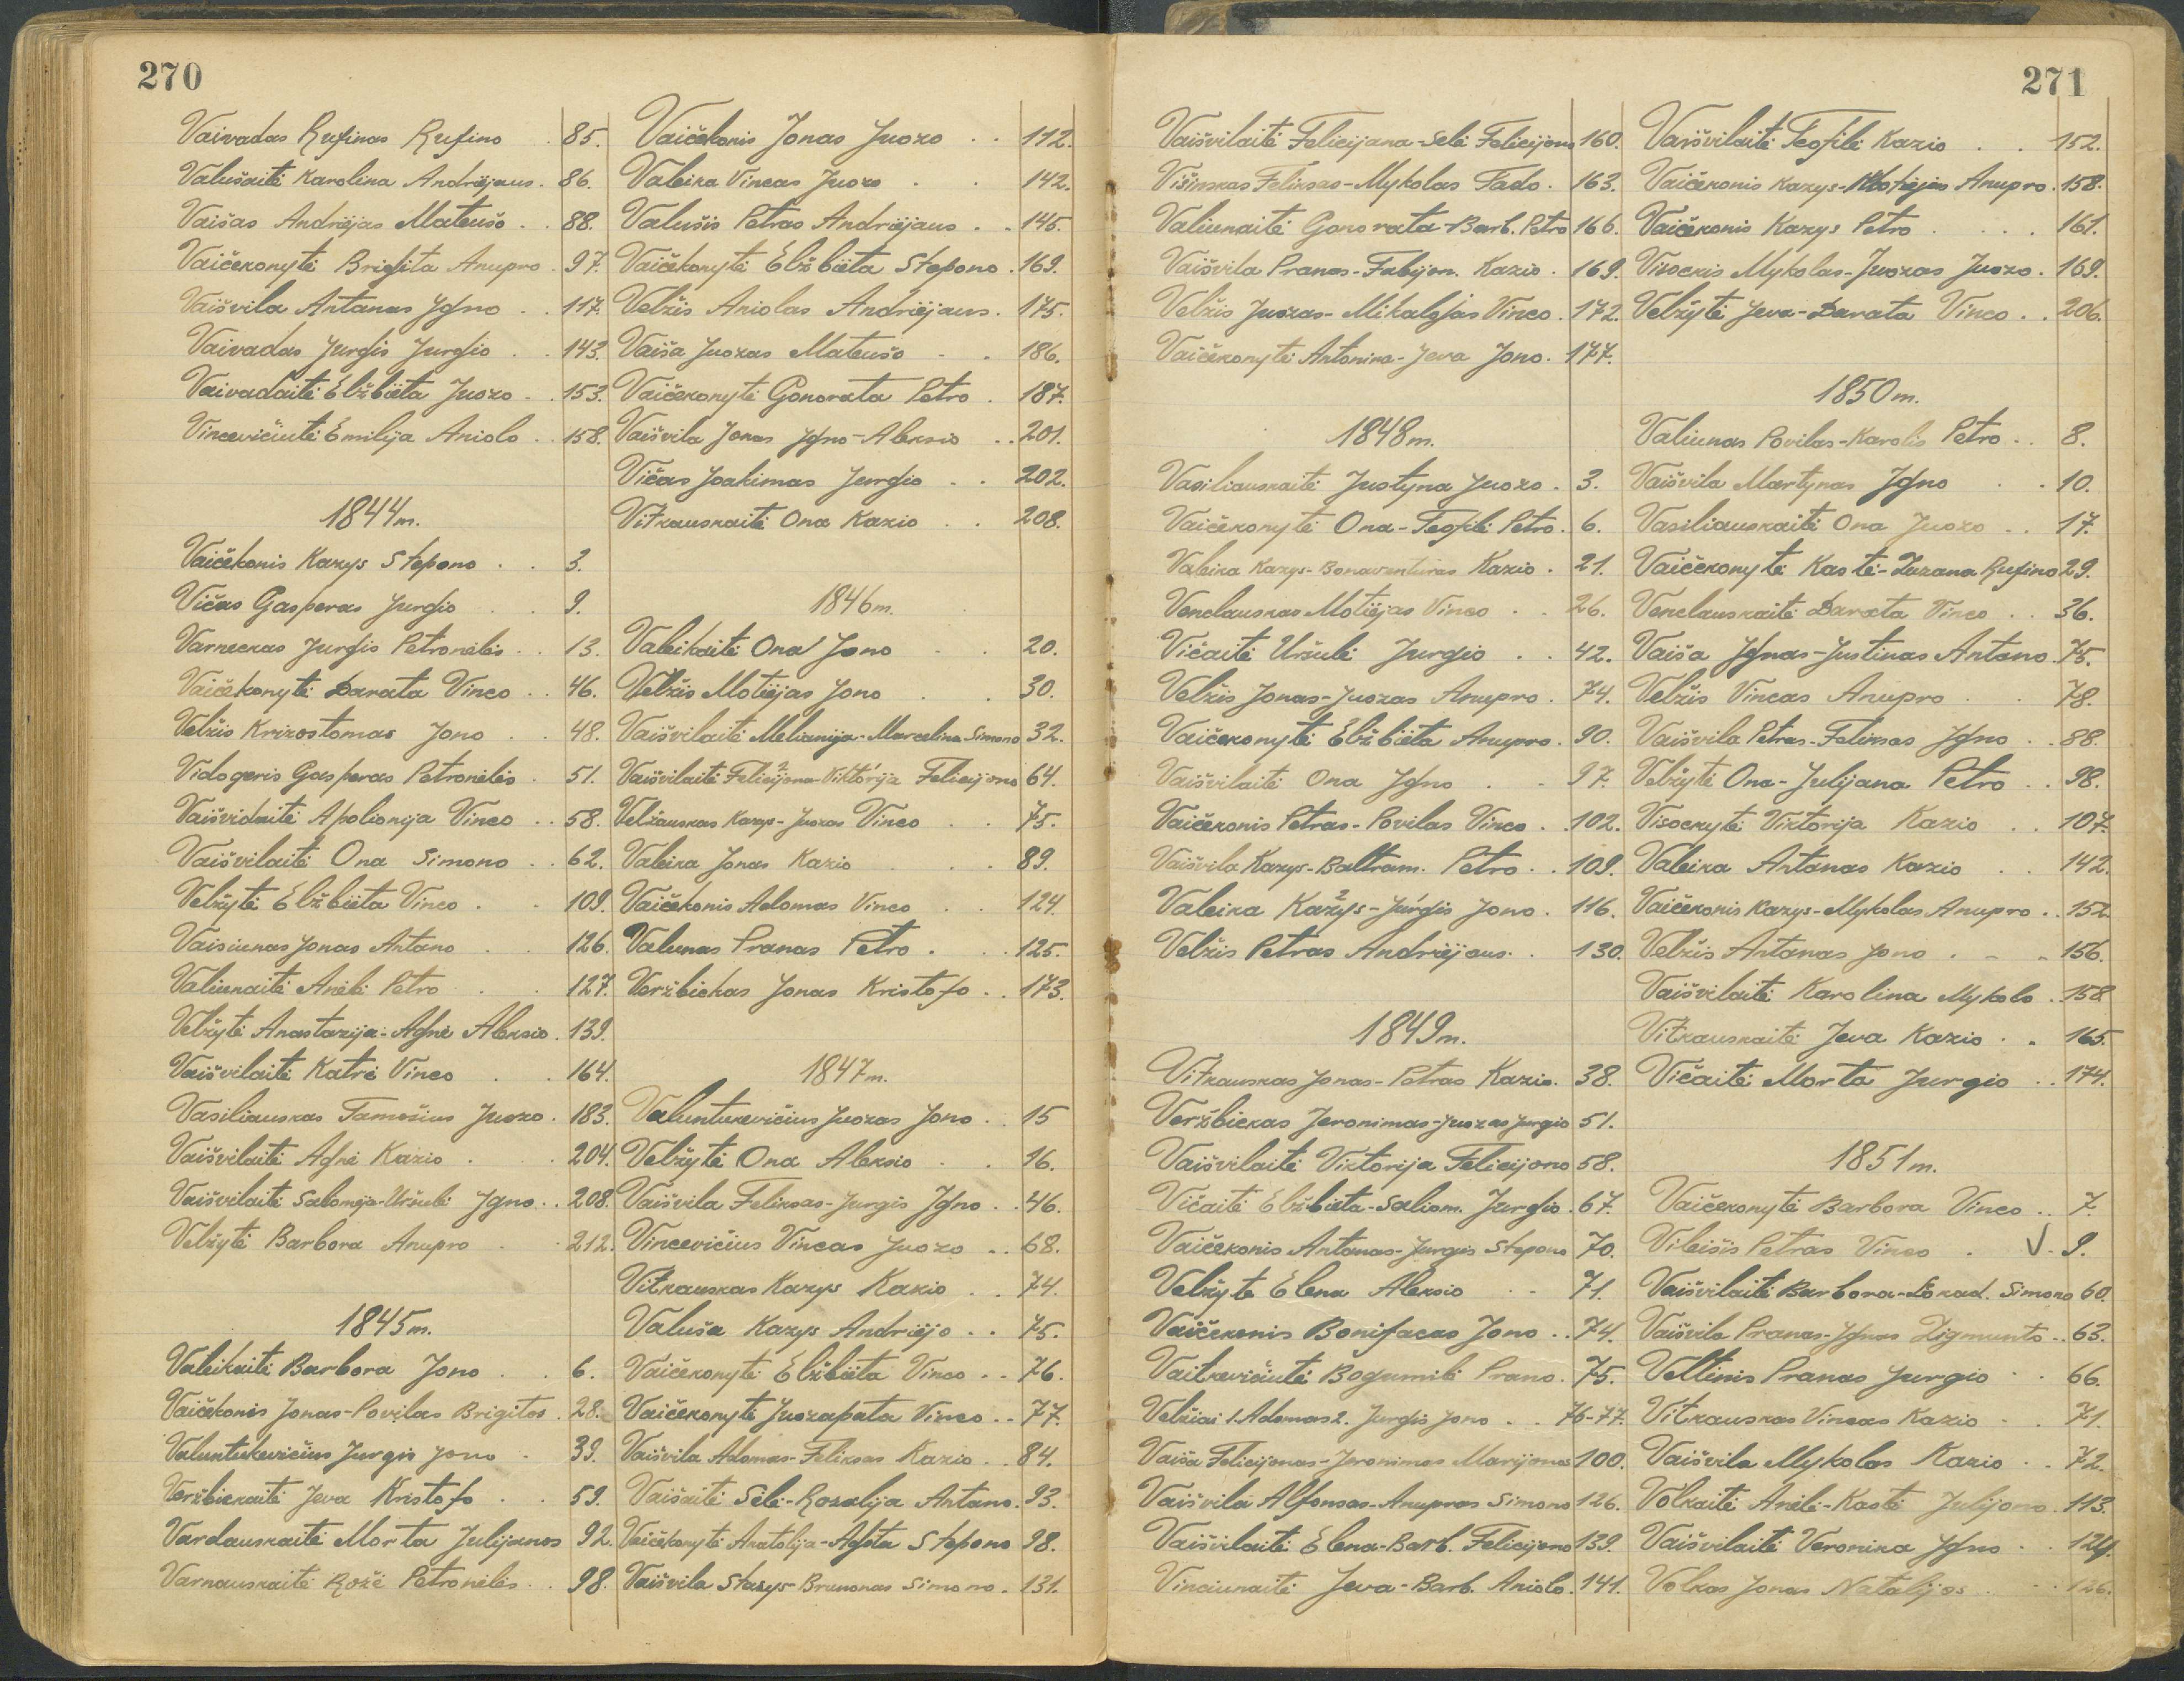 270
Vaivadas Rufinas Rufino . 85.
Valušaitė Karolina Andriejaus . 86.
Vaišas Andriejas Mateušo . . 88.
Vaičekonytė Brigita Anupro . 97.
Vaišvila Antanas Igno . . 117.
Vaivadas Jurgis Jurgio . . 143.
Vaivadaitė Elžbieta Juozo . . 153.
Vincevičiutė Emilija Aniolo . . 158.
1844 m.
Vaičekonis Kazys Stepono . . 3.
Vičas Gasperas Jurgio . . 9.
Varneckas Jurgis Petronėlės . . 13.
Vaičekonytė Darata Vinco . . 46.
Velžis Krizostomas Jono . . 48.
Vidogeris Gasperas Petronėlės . 51.
Vaišvidaitė Apolionija Vinco . . 58.
Vaišvilaitė Ona Simono . . 62.
Velžytė Elžbieta Vinco . . 109.
Vaisiunas Jonas Antano . . 126.
Valiunaitė Anėlė Petro . . 127.
Velžytė Anastazija-Agnė Aleksio . 139.
Vaišvilaitė Katrė Vinco . . 164.
Vasiliauskas Tamošius Juozo . 183.
Vaišvilaitė Agnė Kazio . . 204.
Vaišvilaitė Salomėja-Uršulė Igno . . 208.
Velžytė Barbora Anupro . . 212.
1845 m.
Valeikaitė Barbora Jono . . 6.
Vaičekonis Jonas-Povilas Brigitos . 28.
Valuntukevičius Jurgis Jono . 39.
Veržbickaitė Jeva Kristofo . . 59.
Vardauskaitė Morta Julijonos 92.
Varnauskaitė Rožė Petronėlės . . 98.
Vaičekonis Jonas Juozo . . 112.
Valeika Vincas Juozo . . 142.
Valušis Petras Andriejaus . . 145.
Vaičekonytė Elžbieta Stepono . 169.
Velžis Aniolas Andriejaus . 175.
Vaiša Juozas Mateušo . . 186.
Vaičekonytė Gonorata Petro . 187.
Vaišvila Jonas Igno-Aleksio . . 201.
Vičas Joakimas Jurgio . . 202.
Vitkauskaitė Ona Kazio . . 208.
1846 m.
Valeikaitė Ona Jono . . 20.
Velžis Motiejas Jono . . 30.
Vaišvilaitė Melianija-Marcelina Simono 32.
Vaišvilaitė Felicijona-Viktorija Felicijono 64.
Velžauskas Kazys-Juozas Vinco . . 75.
Valeika Jonas Kazio . . 89.
Vaičekonis Adomas Vinco . . 124.
Valiunas Pranas Petro . . 125.
Veržbickas Jonas Kristofo . . 173.
1847 m.
Valuntukevičius Juozas Jono . . 15
Velžytė Ona Aleksio . . 16.
Vaišvila Feliksas-Jurgis Igno . . 46.
Vincevičius Vincas Juozo . . 68.
Vitkauskas Kazys Kazio . . 74.
Valuša Kazys Andriejo . . 75.
Vaičekonytė Elžbieta Vinco . . 76.
Vaičekonytė Juozapata Vinco . . 77.
Vaišvila Adomas-Feliksas Kazio . . 84.
Vaišaitė Selė-Rozalija Antano . 93.
Vaičekonytė Anatolija-Agota Stepono 98.
Vaišvila Stasys-Brunonas Simono . 131.
271
Vaišvilaitė Felicijana-Selė Felicijono 160.
Višinskas Feliksas-Mykolas Tado . 163.
Valiunaitė Gonorata-Barb. Petro 166.
Vaišvila Pranas-Fabijon. Kazio . 169.
Velžis Juozas-Mikalojas Vinco . 172.
Vaičekonytė Antonina-Jeva Jono . 177.
1848 m.
Vasiliauskaitė Justyna Juozo . 3.
Vaičekonytė Ona-Teofilė Petro . 6.
Valeika Kazys-Bonaventuras Kazio . 21.
Venclauskas Motiejas Vinco . . 26.
Vičaitė Uršulė Jurgio . . 42.
Velžis Jonas-Juozas Anupro . 74.
Vaičekonytė Elžbieta Anupro . 90.
Vaišvilaitė Ona Igno . . 97.
Vaičekonis Petras-Povilas Vinco . . 102.
Vaišvila Kazys-Baltram. Petro . . 109.
Valeika Kazys-Jurgis Jono . 116.
Velžis Petras Andriejaus . . 130.
1849 m.
Vitkauskas Jonas-Petras Kazio . 38.
Veržbickas Jeronimas-Juozas Jurgio 51.
Vaišvilaitė Viktorija Felicijono 58.
Vičaitė Elžbieta-Saliom. Jurgio . 67.
Vaičekonis Antanas-Jurgis Stepono 70.
Velžytė Elena Aleksio . . 71.
Vaičekonis Bonifacas Jono . . 74.
Vaitkevičiutė Bogumilė Prano . 75.
Velžiai 1. Adomas 2. Jurgis Jono . . 76-77.
Vaiša Felicijonas-Jeronimas Marijonos 100.
Vaišvila Alfonsas-Anupras Simono 126.
Vaišvilaitė Elena-Barb. Felicijono 139.
Vinciunaitė Jeva-Barb. Aniolo . 141.
Vaišvilaitė Teofilė Kazio . . 152.
Vaičekonis Kazys-Motiejas Anupro . 158.
Vaičekonis Kazys Petro . . . 161.
Visockis Mykolas-Juozas Juozo . 169.
Velžytė Jeva-Darata Vinco . . 206.
1850 m.
Valiunas Povilas-Karolis Petro . . 8.
Vaišvila Martynas Igno . . 10.
Vasiliauskaitė Ona Juozo . . 17.
Vaičekonytė Kastė-Zuzana Rufino 29.
Venclauskaitė Darata Vinco . . 36.
Vaiša Ignas-Justinas Antano . 75.
Velžis Vincas Anupro . . 78.
Vaišvila Petras-Feliksas Igno . . 88.
Velžytė Ona-Julijana Petro . . 98.
Visockytė Viktorija Kazio . . 107.
Valeika Antanas Kazio . . 142.
Vaičekonis Kazys-Mykolas Anupro . . 152.
Velžis Antanas Jono . . . 156.
Vaišvilaitė Karolina Mykolo . 158.
Vitkauskaitė Jeva Kazio . . 165.
Vičaitė Morta Jurgio . . 174.
1851 m.
Vaičekonytė Barbora Vinco . . 7.
Vileišis Petras Vinco . V . 9.
Vaišvilaitė Barbora-Lokad. Simono 60.
Vaišvila Pranas-Ignas Zigmunto . . 63.
Veltinis Pranas Jurgio . . 66.
Vitkauskas Vincas Kazio . . 71.
Vaišvila Mykolas Kazio . . 72.
Volkaitė Anėlė-Kastė Julijono . 113.
Vaišvilaitė Veronika Igno . . 124.
Volkas Jonas Natalijos . . 126.